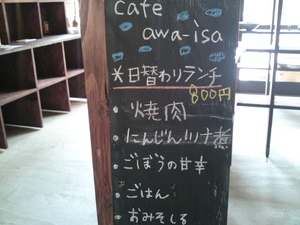 cafe
awa-isa
*日替わりランチ
800円
・焼肉
・にんじんツナ煮
・ごぼうの甘辛
・ごはん
・おみそしる